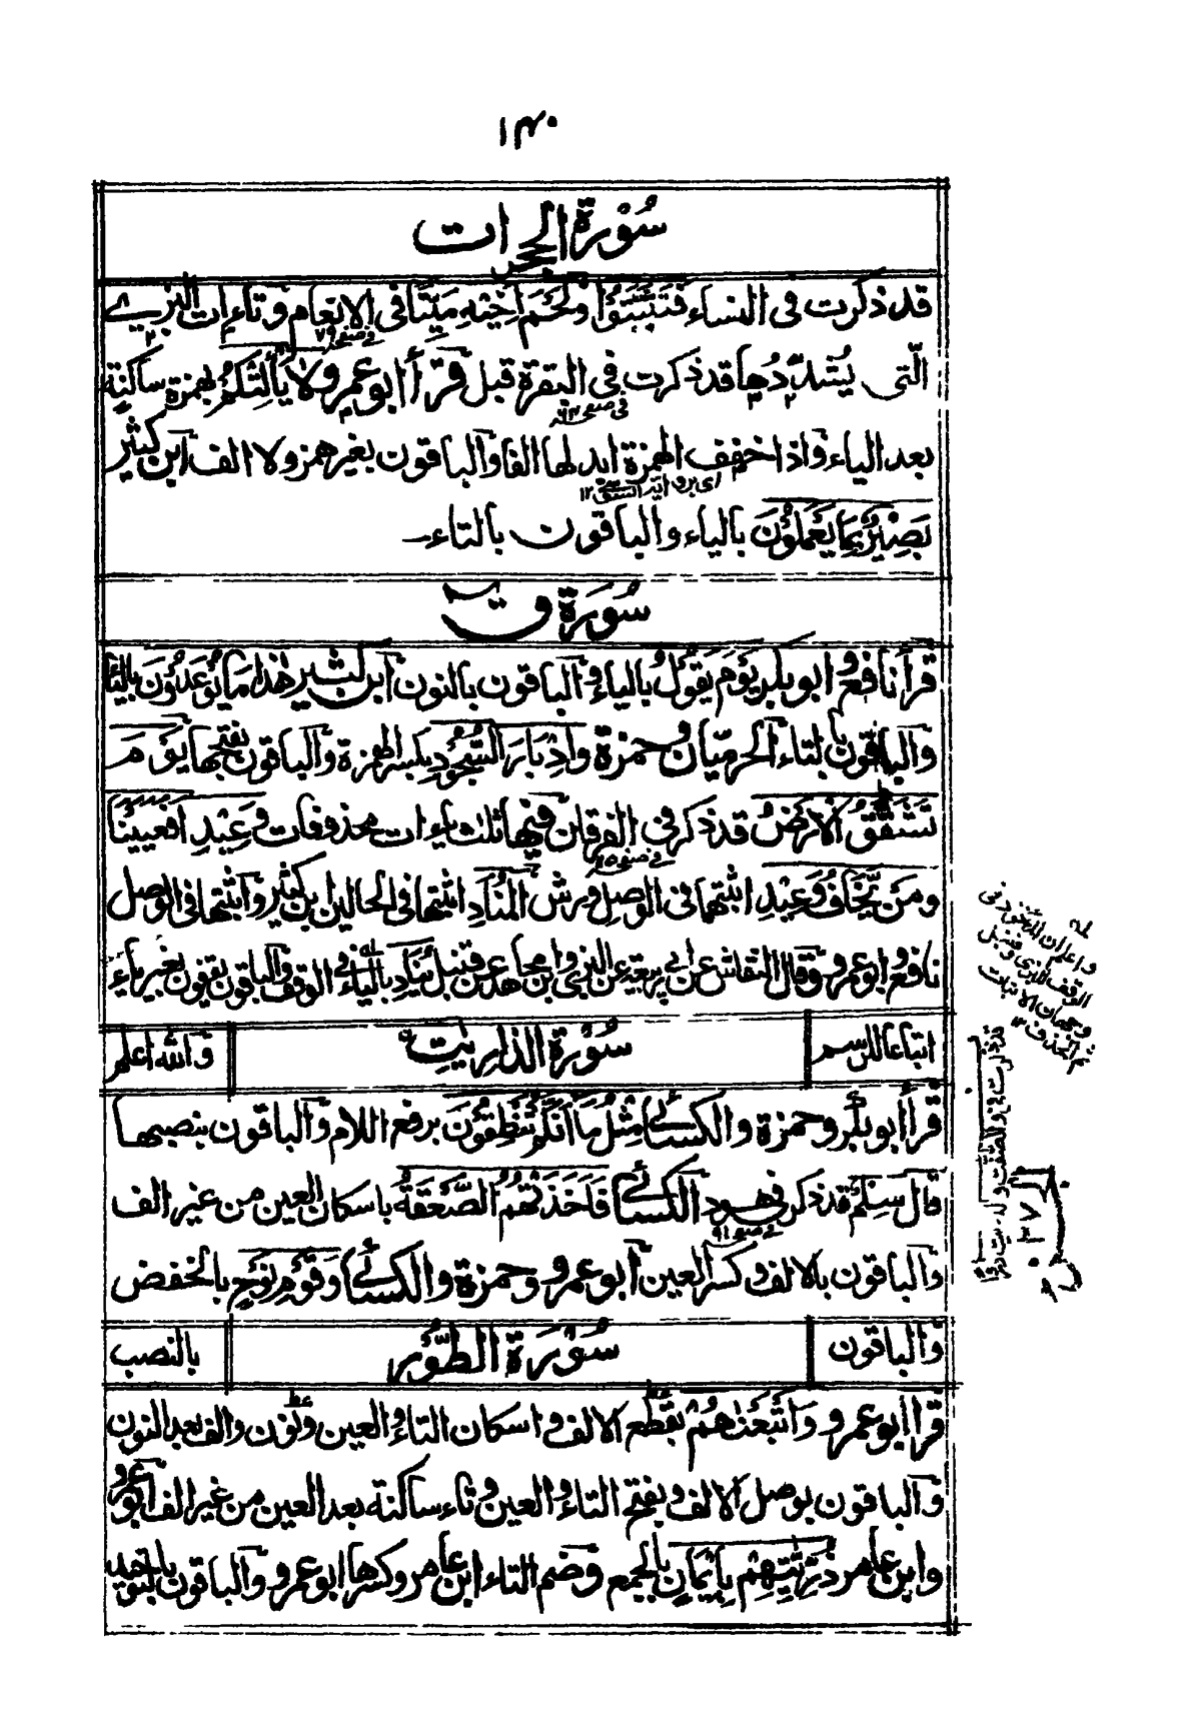 ١٣٠
سُوْرَةُ الحجرات
قد ذكرت فى النساء فَتَبَيَّنُوْا ولَحْمَ اَخِيْهِ مَيْتًا فى الانعام وتاءات البزى
فى صفحہ ٧٩
الّتى يُشدّدُها قد ذكرت فى البقرة قبل قرأ ابو عمرو لا يَأْلِتْكُمْ بهمزة ساكنة
فى صفحہ ٦٣
بعد الياء واذا خفف الهمزة ابدلها الفا والباقون بغير همز ولا الف ابن كثير
اى برواية السوسى ١٢
بَصِيْرٌ بِمَا يَعْمَلُوْنَ بالياء والباقون بالتاء۔
سُوْرَة قٓ
قرأ نافع وابو بكر يَوْمَ يَقُوْلُ بالياء والباقون بالنون ابن كثير هٰذا مَا يُوْعَدُوْنَ بالياء
والباقون بالتاء الحرميّان وحمزة وَاِدْبَارَ السُّجُوْدِ بكسر الهمزة والباقون بفتحها يَوْمَ
تَشَقَّقُ الْاَرْضُ قد ذكر فى الفرقان فيها ثلث ياءات محذوفات وَعِيْدِ اَفَعَيِيْنَا
فى صفحہ
وَمَنْ يَّخَافُ وَعِيْدِ اثبتهما فى الوصل ورش الْمُنَادِ اثبتها فى الحالين ابن كثير واثبتها فى الوصل
نافع وابو عمرو وقال النقاش عن ابى ربيعة عن البزى وابن مجاهد عن قنبل يُنَادِ بالياء فى الوقف والباقون يقفون بغير ياء
اتباعا للرسم
سُوْرَةُ الذاريٰت
والله اعلم
قرأ ابو بكر وحمزة والكسائى مِثْلُ مَا اَنَّكُمْ تَنْطِقُوْنَ برفع اللام والباقون بنصبها
قَالَ سِلْمٌ قد ذكر فى هود الكسائى فَاَخَذَتْهُمُ الصَّعْقَةُ باسكان العين من غير الف
فى صفحہ ٩١
والباقون بالالف وكسر العين ابو عمرو وحمزة والكسائى وَقَوْمِ نُوْحٍ بالخفض
والباقون
سُوْرَةُ الطُّوْر
بالنصب
قرأ ابو عمرو وَاَتْبَعْنٰهُمْ بقطع الالف واسكان التاء والعين ونون والف بعد النون
والباقون بوصل الالف وبفتح التاء والعين وتاء ساكنة بعد العين من غير الف ابو عمرو
وابن عامر ذُرِّيّٰتِهِمْ بِاِيْمَانٍ بالجمع وضم التاء ابن عامر وكسرها ابو عمرو والباقون بالتوحيد
واعلم ان الماخوذ فى
الوقف للبزى وقنبل
وجهان الاثبات
ثم الحذف ١٢